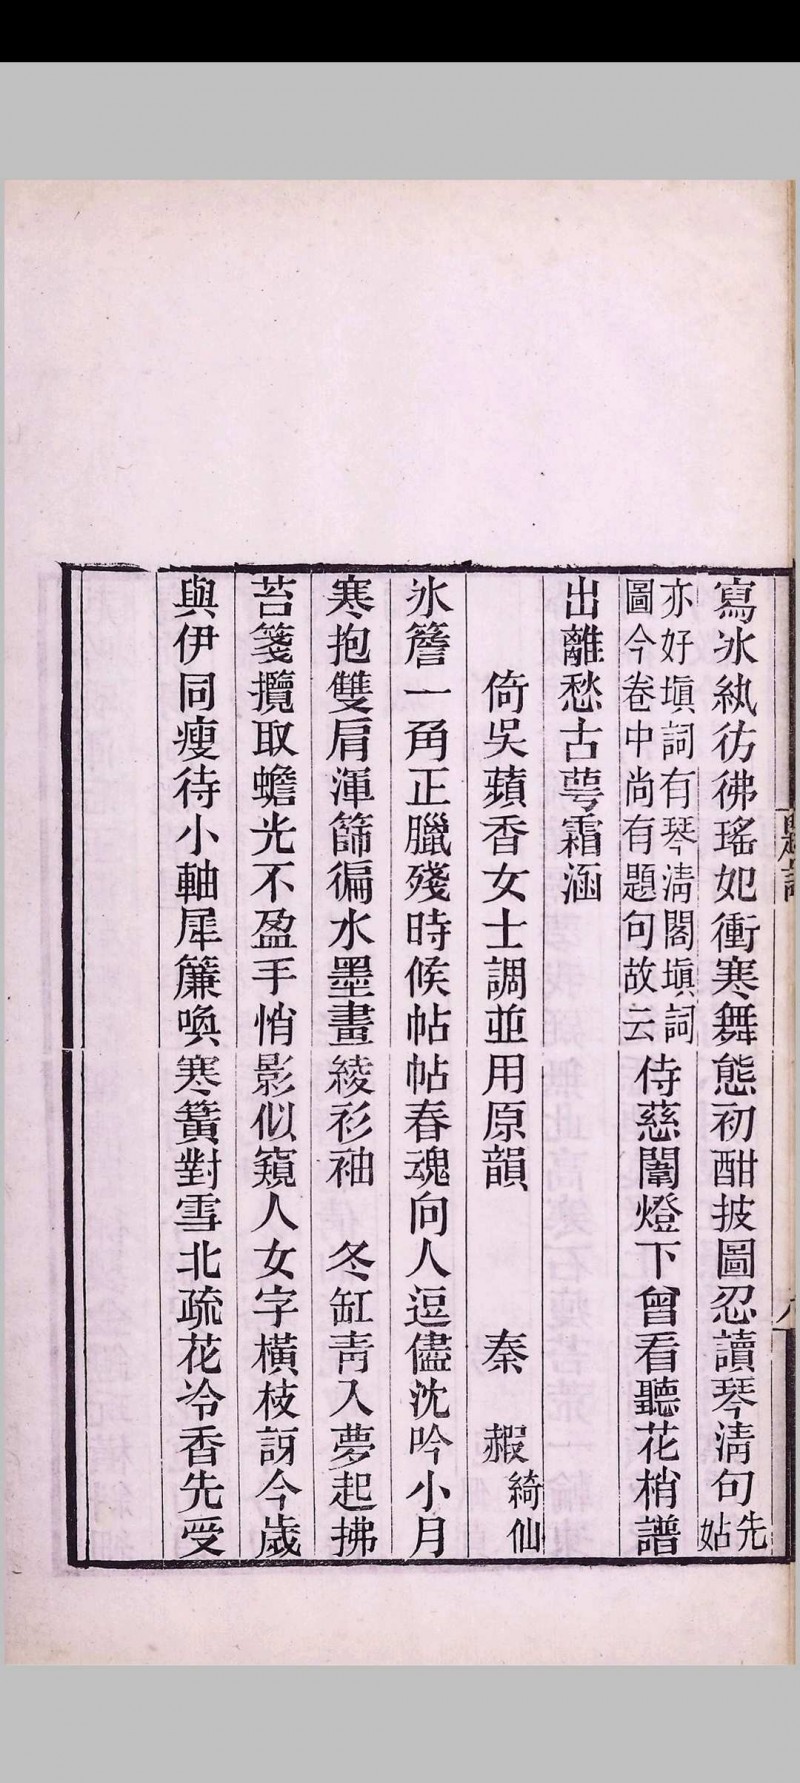 寫冰紈彷彿瑤妃衝寒舞態初酣披圖忍讀琴淸句先姑
亦好塡詞有琴淸閣塡詞
圖今卷中尚有題句故云
侍慈闈燈下曾看聽花梢譜
出離愁古萼霜涵
倚吳蘋香女士調並用原韻
秦
綺仙
氷簷一角正臘殘時候帖帖春魂向人逗儘沈吟小月
寒抱雙肩渾篩徧水墨畫綾衫袖 冬缸靑入夢起拂
苔箋攬取蟾光不盈手悄影似窺人女字橫枝訝今歲
與伊同瘦待小軸犀簾喚寒簧對雪北疏花冷香先受